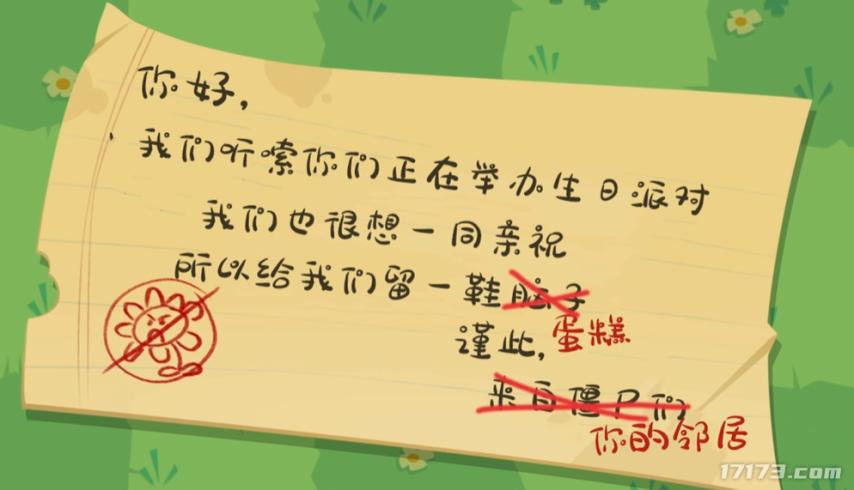 你好，
我们听嗦你们正在举办生日派对
我们也很想一同亲祝
所以给我们留一鞋脑子
蛋糕
谨此，
来自僵尸们
你的邻居
17173.com